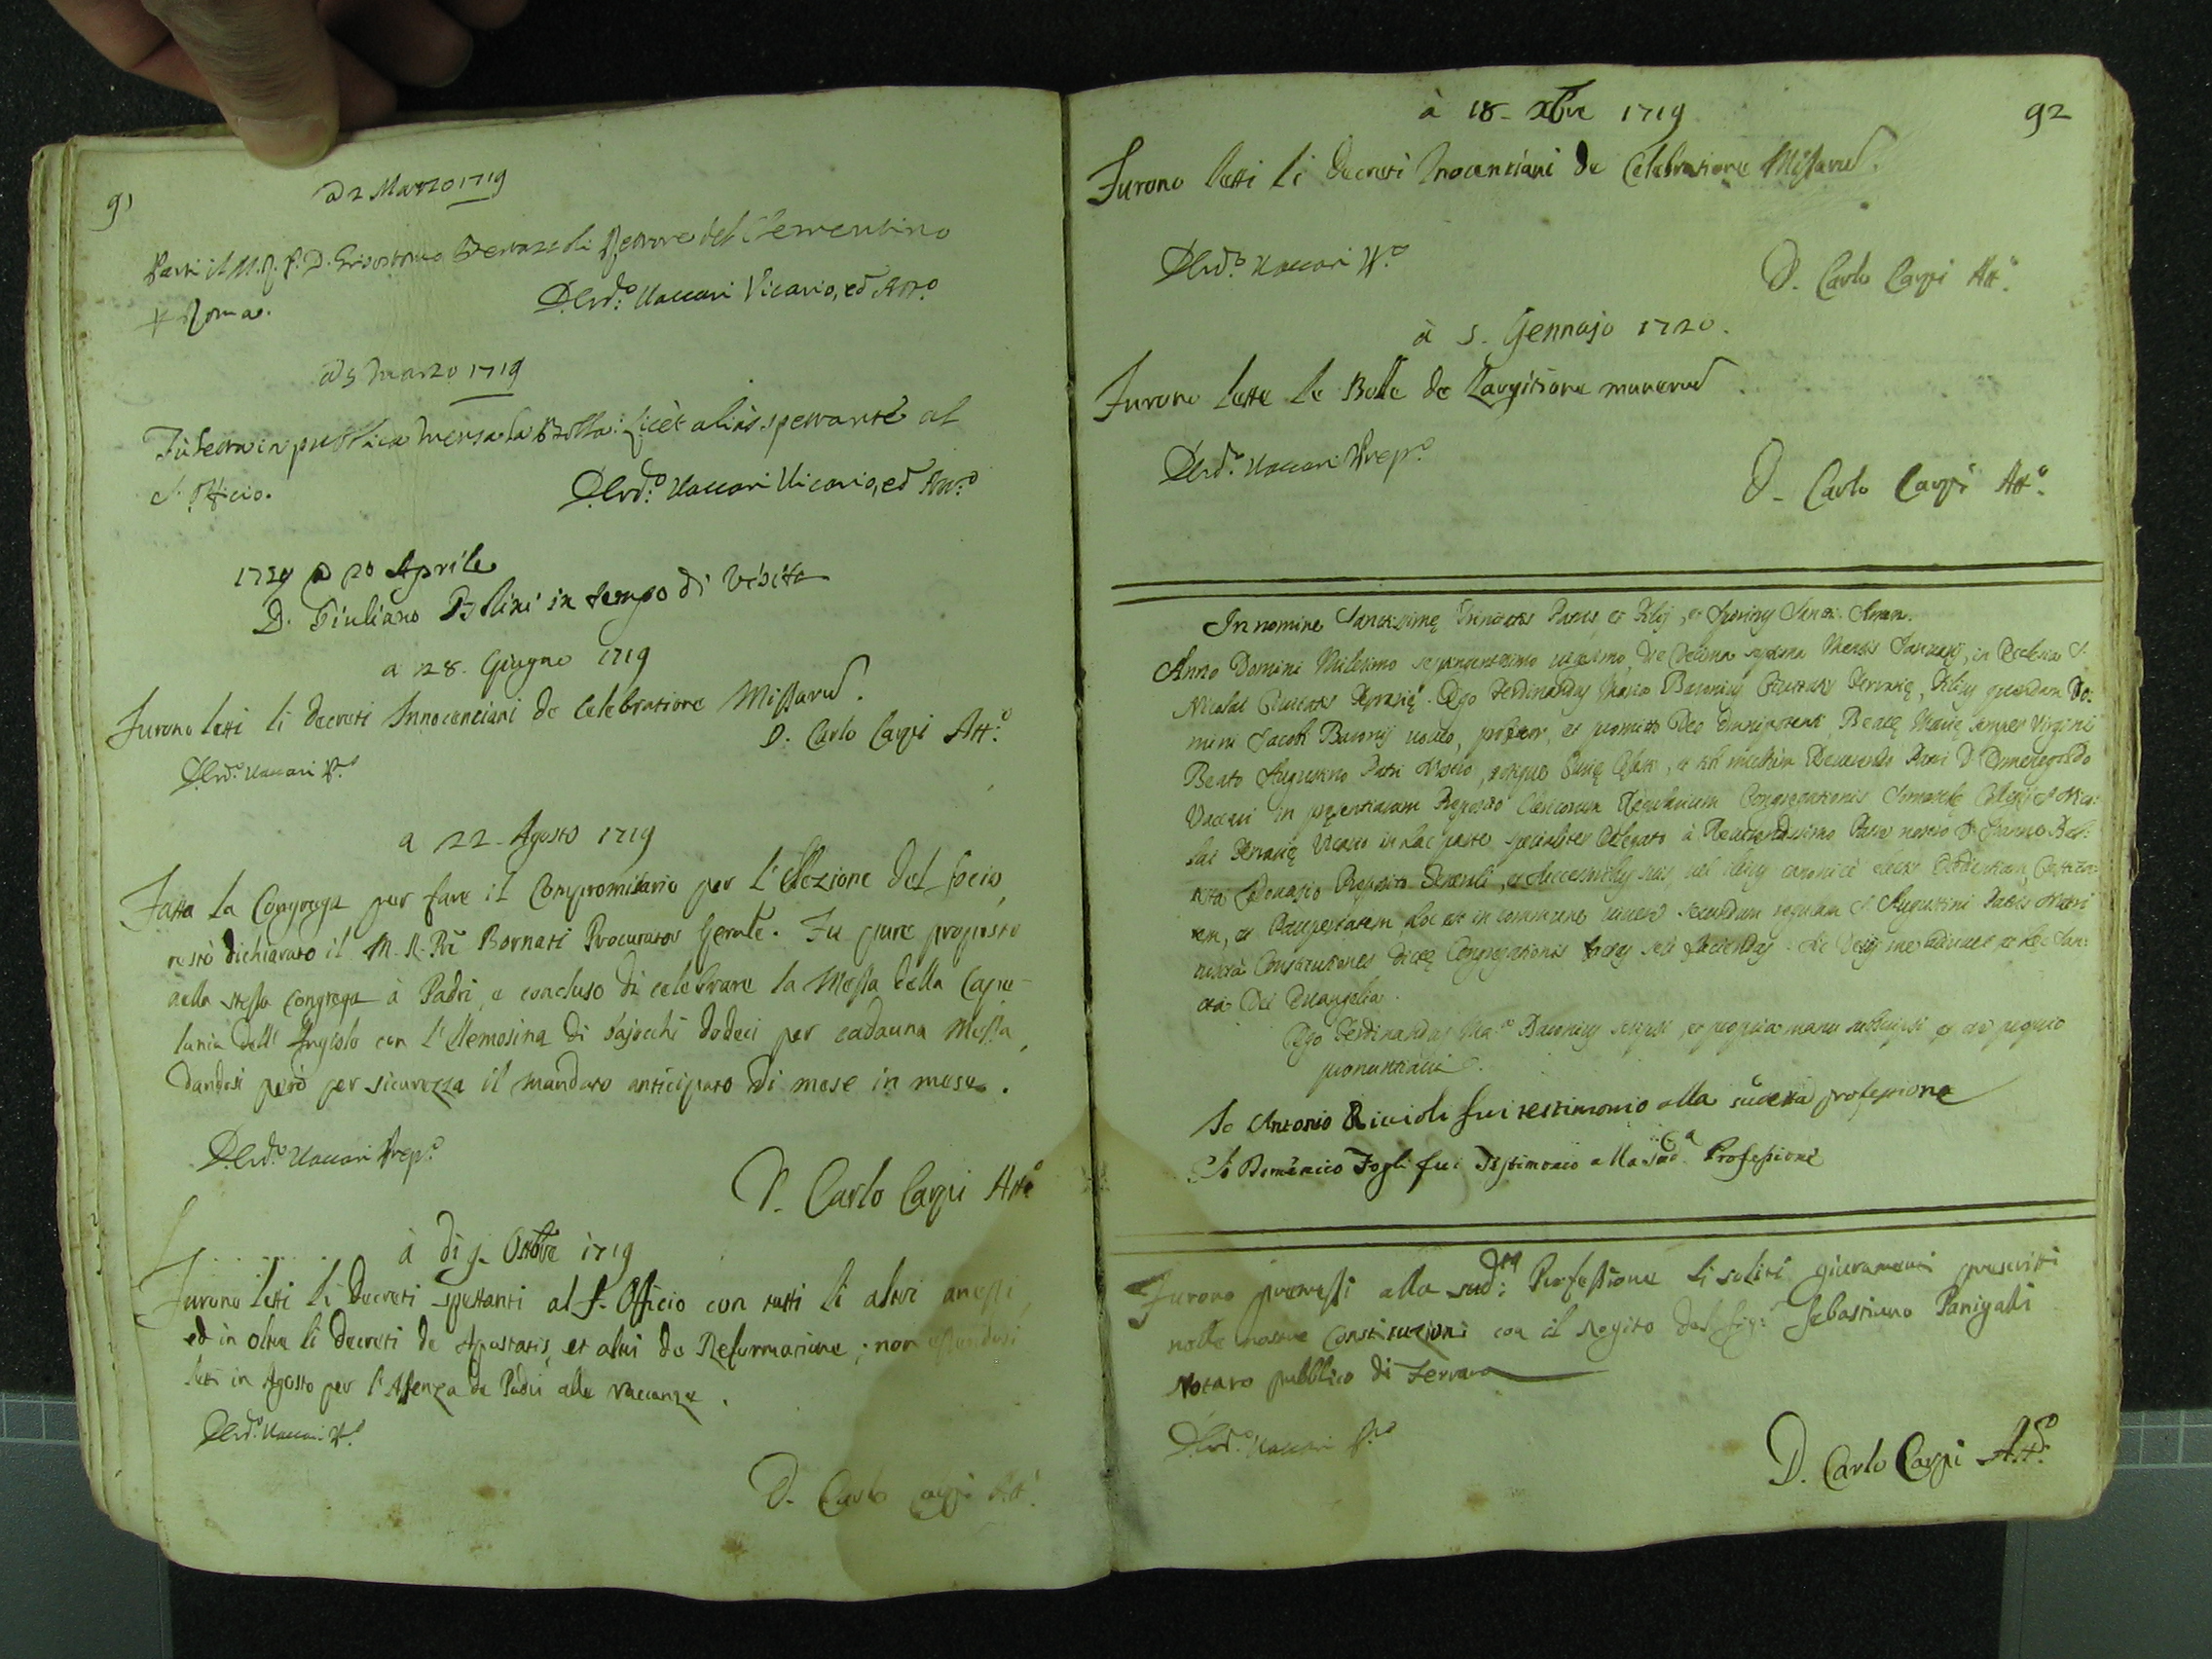 91
A 2 Marzo 1719
Partì il M. R. P. D. Grisostomo Bertazzoli Rettore del Clementino
p Roma.
D. Erd.o Vaccari Vicario, ed Att.o
A 5 Marzo 1719
Fù letta in publica mensa la Bolla: Licèt aliàs spettante al
S. Officio.
D. Erd.o Vaccari Vicario, ed Att.o
1719 a 20 Aprile
D. Giuliano Bolini in tempo di visita
a 28. Giugno 1719
Furono letti li decreti Innocenciani de celebratione Missarum.
D. Carlo Carpi Att.o
D. Erd.o Vaccari V.o
a 22. Agosto 1719
Fatta la Congrega per fare il Compromisario per l'elezione del socio
restò dichiarato il M. R. Prē Bornati Procurator Gerāle. Fu pure proposto
nella stessa congrega à Padri, e concluso di celebrare la Messa della Capel-
lania dell' Angiolo con l'elemosina di bajocchi dodeci per cadauna Messa,
dandosi però per sicurezza il mandato anticipato di mese in mese.
D. Erd.o Vaccari Prep.o
D. Carlo Carpi Att.o
à di 9. Ottobre 1719
Furono letti li Decreti spettanti al S. Officio con tutti li altri anessi,
ed in oltre li decreti de Apostatis, et altri de Reformatione; non essendosi
letti in Agosto per l'Assenza de Padri alle vaccanze.
D. Erd.o Vaccari V.o
D. Carlo Carpi Att.o
92
à 18. Xbre 1719
Furono letti li decreti Inocenciani de Celebratione Missarum.
D. Erd.o Vaccari V.o
D. Carlo Carpi Att.o
à 5. Gennajo 1720.
Furono lette le Bolle de Largitione munerum.
D. Erd.o Vaccari Prep.o
D. Carlo Carpi Att.o
In nomine Sanctissimę Trinitatis Patris, et Filij, et Spiritus Sancti. Amen.
Anno Domini Milesimo septingentesimo vigesimo, die decima septima Mensis Januarij, in Ecclesia S.
Nicolai Civitatis Ferrarię. Ego Ferdinandus Maria Baronius Civitatis Ferrarię, Filius quondam Do:
mini Jacobi Baronij voveo, profiteor, et promitto Deo Omnipotenti, Beatę Marię semper Virgini
Beato Augustino Patri Nostro, totique Curię Cęlesti, et tibi Reverendo Patri D. Ermenegildo
Vaccari in pręsentiarum Preposito Clericorum Regularium Congregationis Somaschę Collegij S. Nico:
lai Ferrarię Vicario in hac parte specialiter delegato à Reverendissimo Patre nostro D. Joanne Bap:
tista Preposito Generali, et successoribus suis, vel illius canonicè electis Obedientiam, Castita:
tem, et Paupertatem, hoc est in commune vivere secundum regulam S. Augustini Patris Nostri
iuxta Constitutiones dictę Congregationis factas seu faciendas. Sic Deus me adiuvet et hęc San:
cta Dei Evangelia.
Ego Ferdinandus Ma.a Baronius scripsi, et propria manu subscripsi et ore proprio
pronuntiavi.
Io Antonio Riccioli fui testimonio alla sudetta professione
Io Domenico Fogli fui Testimonio alla sud.a Professione
Furono premessi alla sud.ta Professione li soliti giuramenti prescritti
nelle nostre Constituzioni con il Rogito del Sig.r Sebastiano Panigalli
Notaro publico di Ferrara
D. Erd.o Vaccari V.o
D. Carlo Carpi Att.o